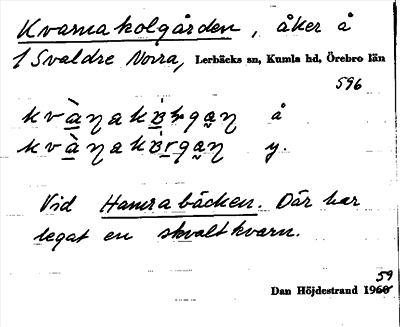 Kvarnakolgården, åker å
1 Svaldre Norra, Lerbäcks sn, Kumla hd, Örebro län
596
å
y.
Vid Hamrabäcken. Där har
legat en skvaltkvarn.
59
Dan Höjdestrand 1960